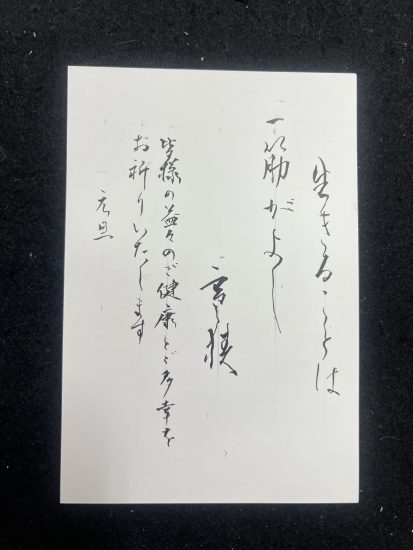 生きることは
一筋がよし
寒椿
皆様の益々のご健康とご多幸を
お祈りいたします
元旦